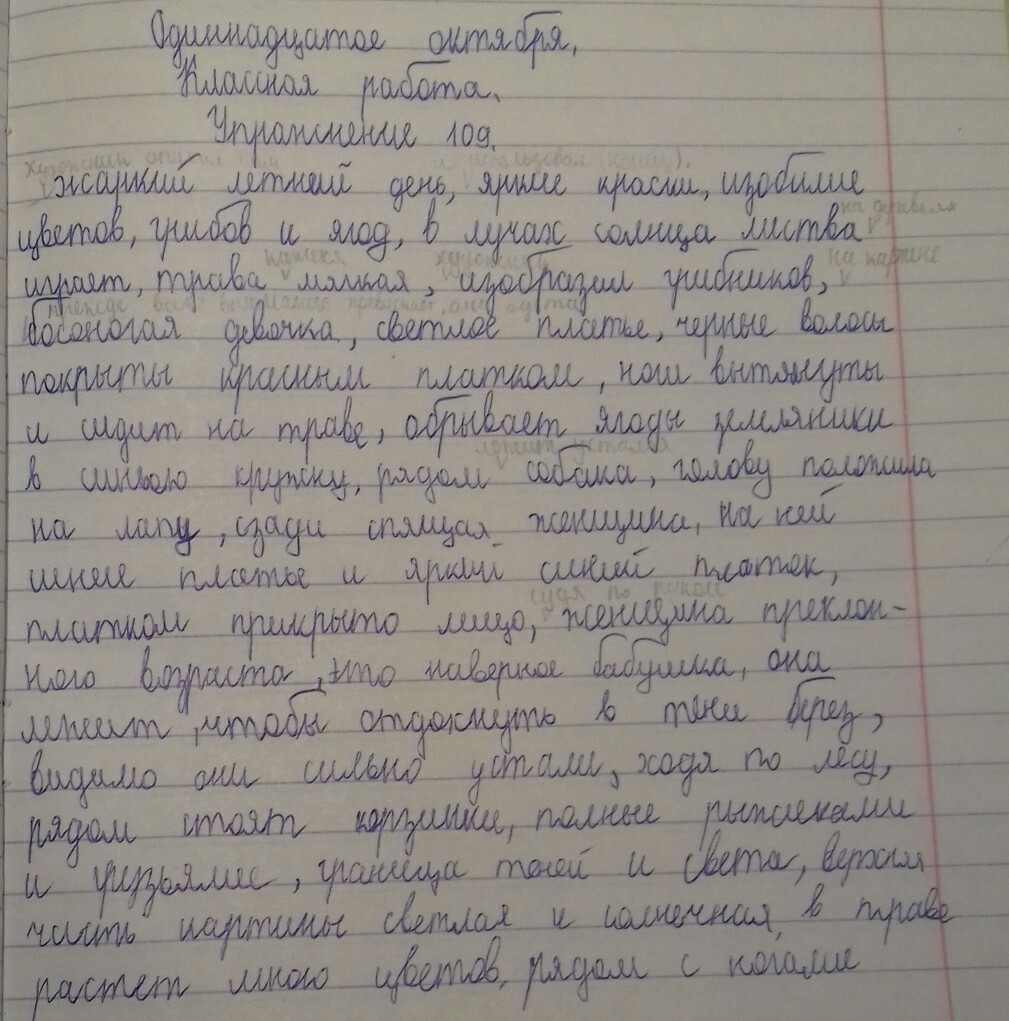 Одиннадцатое октября.
Классная работа.
Упражнение 109.
и использовал (кошу).
жаркий летний день, яркие краски, изобилие
на деревьях
цветов, грибов и ягод, в лучах солнца листва
на картине
играет, трава мягкая, изобразил грибников,
прежде всего внимание
босоногая девочка, светлое платье, черные волосы
покрыты красным платком, ноги вытянуты
и сидит на траве, обрывает ягоды земляники
лежит устало
в синюю кружку, рядом собака, голову положила
на лапу, сзади спящая женщина, на ней
синее платье и яркий синий платок,
судя по рукам
платком прикрыто лицо, женщина преклон-
ного возраста, это наверное бабушка, она
лежит, чтобы отдохнуть в тени берез,
видимо они сильно устали, ходя по лесу,
рядом стоят корзинки, полные рыжиками
и груздями, граница теней и света, верхняя
часть картины светлая и солнечная, в траве
растет много цветов, рядом с ногами